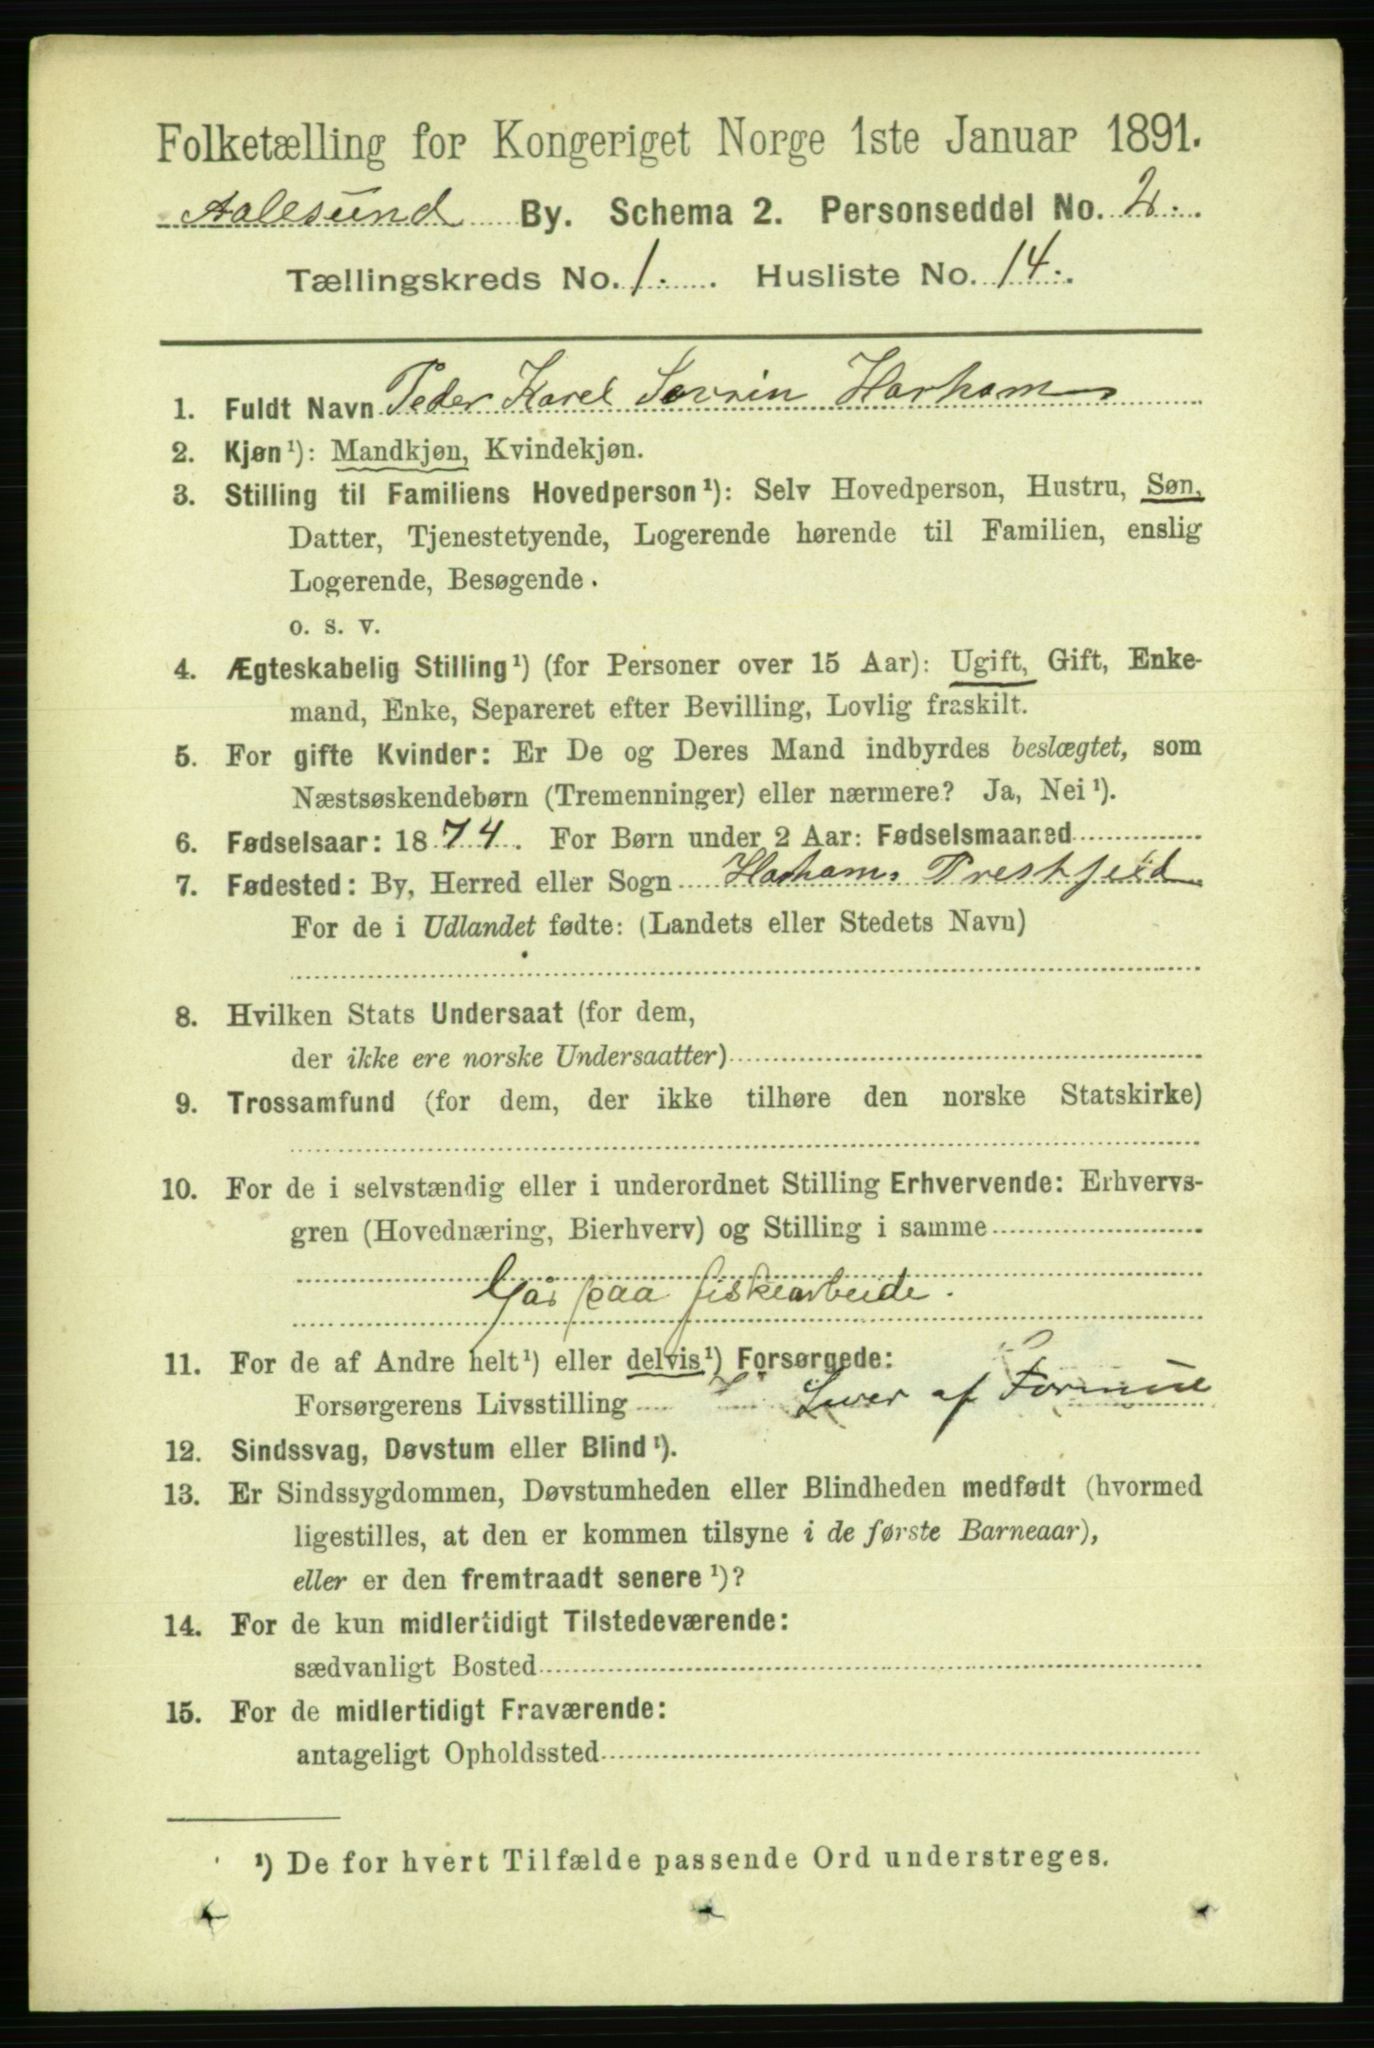 Folketælling for Kongeriget Norge 1ste Januar 1891.
Aalesund By. Schema 2. Personseddel No. 2.
Tællingskreds No. 1. Husliste No. 14.
1. Fuldt Navn Peder Karel Sevrin Harham
2. Kjøn¹): Mandkjøn, Kvindekjøn.
3. Stilling til Familiens Hovedperson¹): Selv Hovedperson, Hustru, Søn,
Datter, Tjenestetyende, Logerende hørende til Familien, enslig
Logerende, Besøgende.
o. s. v.
4. Ægteskabelig Stilling¹) (for Personer over 15 Aar): Ugift, Gift, Enke-
mand, Enke, Separeret efter Bevilling, Lovlig fraskilt.
5. For gifte Kvinder: Er De og Deres Mand indbyrdes beslægtet, som
Næstsøskendebørn (Tremenninger) eller nærmere? Ja, Nei¹).
6. Fødselsaar: 1874. For Børn under 2 Aar: Fødselsmaaned
7. Fødested: By, Herred eller Sogn Harhams Prestfjeld
For de i Udlandet fødte: (Landets eller Stedets Navn)
8. Hvilken Stats Undersaat (for dem,
der ikke ere norske Undersaatter)
9. Trossamfund (for dem, der ikke tilhøre den norske Statskirke)
10. For de i selvstændig eller i underordnet Stilling Erhvervende: Erhvervs-
gren (Hovednæring, Bierhverv) og Stilling i samme
Gås paa fiskearbeide.
11. For de af Andre helt¹) eller delvis¹) Forsørgede:
Forsørgerens Livsstilling Lever af Formue
12. Sindssvag, Døvstum eller Blind¹).
13. Er Sindssygdommen, Døvstumheden eller Blindheden medfødt (hvormed
ligestilles, at den er kommen tilsyne i de første Barneaar),
eller er den fremtraadt senere¹)?
14. For de kun midlertidigt Tilstedeværende:
sædvanligt Bosted
15. For de midlertidigt Fraværende:
antageligt Opholdssted
¹) De for hvert Tilfælde passende Ord understreges.